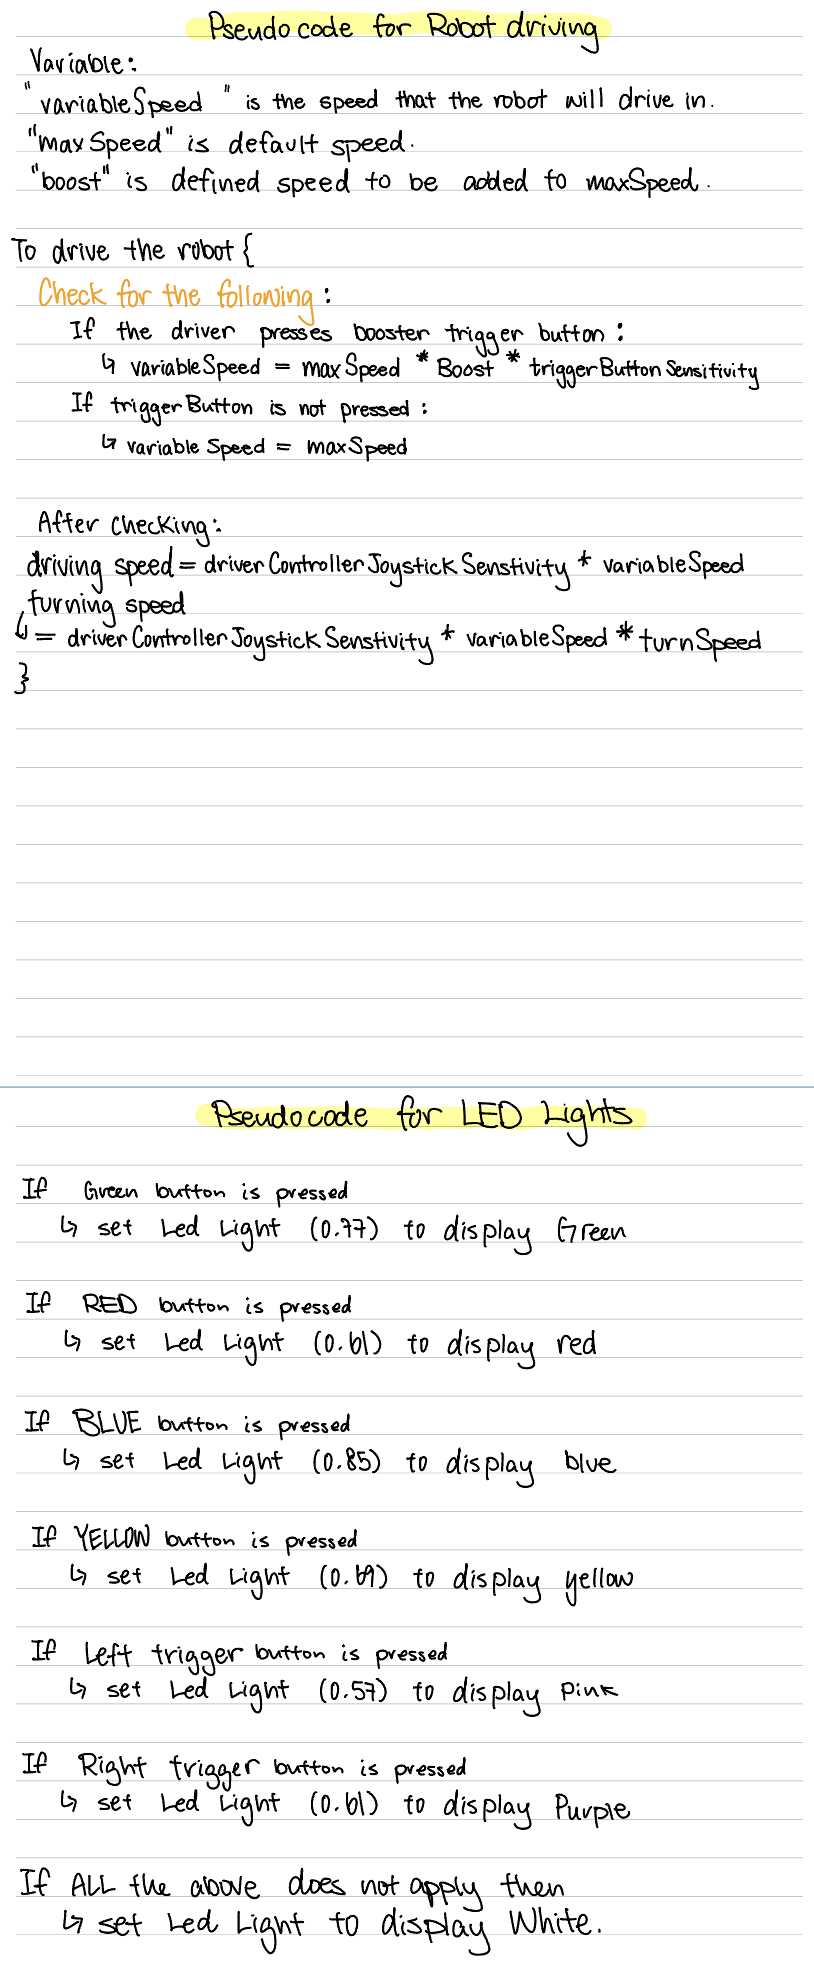 Pseudocode for Robot driving
Variable:
"variableSpeed " is the speed that the robot will drive in.
"maxSpeed" is default speed.
"boost" is defined speed to be added to maxSpeed.
To drive the robot {
Check for the following:
If the driver presses booster trigger button:
↳ variableSpeed = maxSpeed * Boost * triggerButtonSensitivity
If triggerButton is not pressed:
↳ variableSpeed = maxSpeed
After checking:
driving speed = driverControllerJoystickSenstivity * variableSpeed
turning speed
↳ = driverControllerJoystickSenstivity * variableSpeed * turnSpeed
}
Pseudocode for LED Lights
If Green button is pressed
↳ set Led Light (0.77) to display Green
If RED button is pressed
↳ set Led Light (0.61) to display red
If BLUE button is pressed
↳ set Led Light (0.85) to display blue
If YELLOW button is pressed
↳ set Led Light (0.69) to display yellow
If Left trigger button is pressed
↳ set Led Light (0.57) to display pink
If Right trigger button is pressed
↳ set Led Light (0.61) to display Purple
If ALL the above does not apply then
↳ set Led Light to display White.